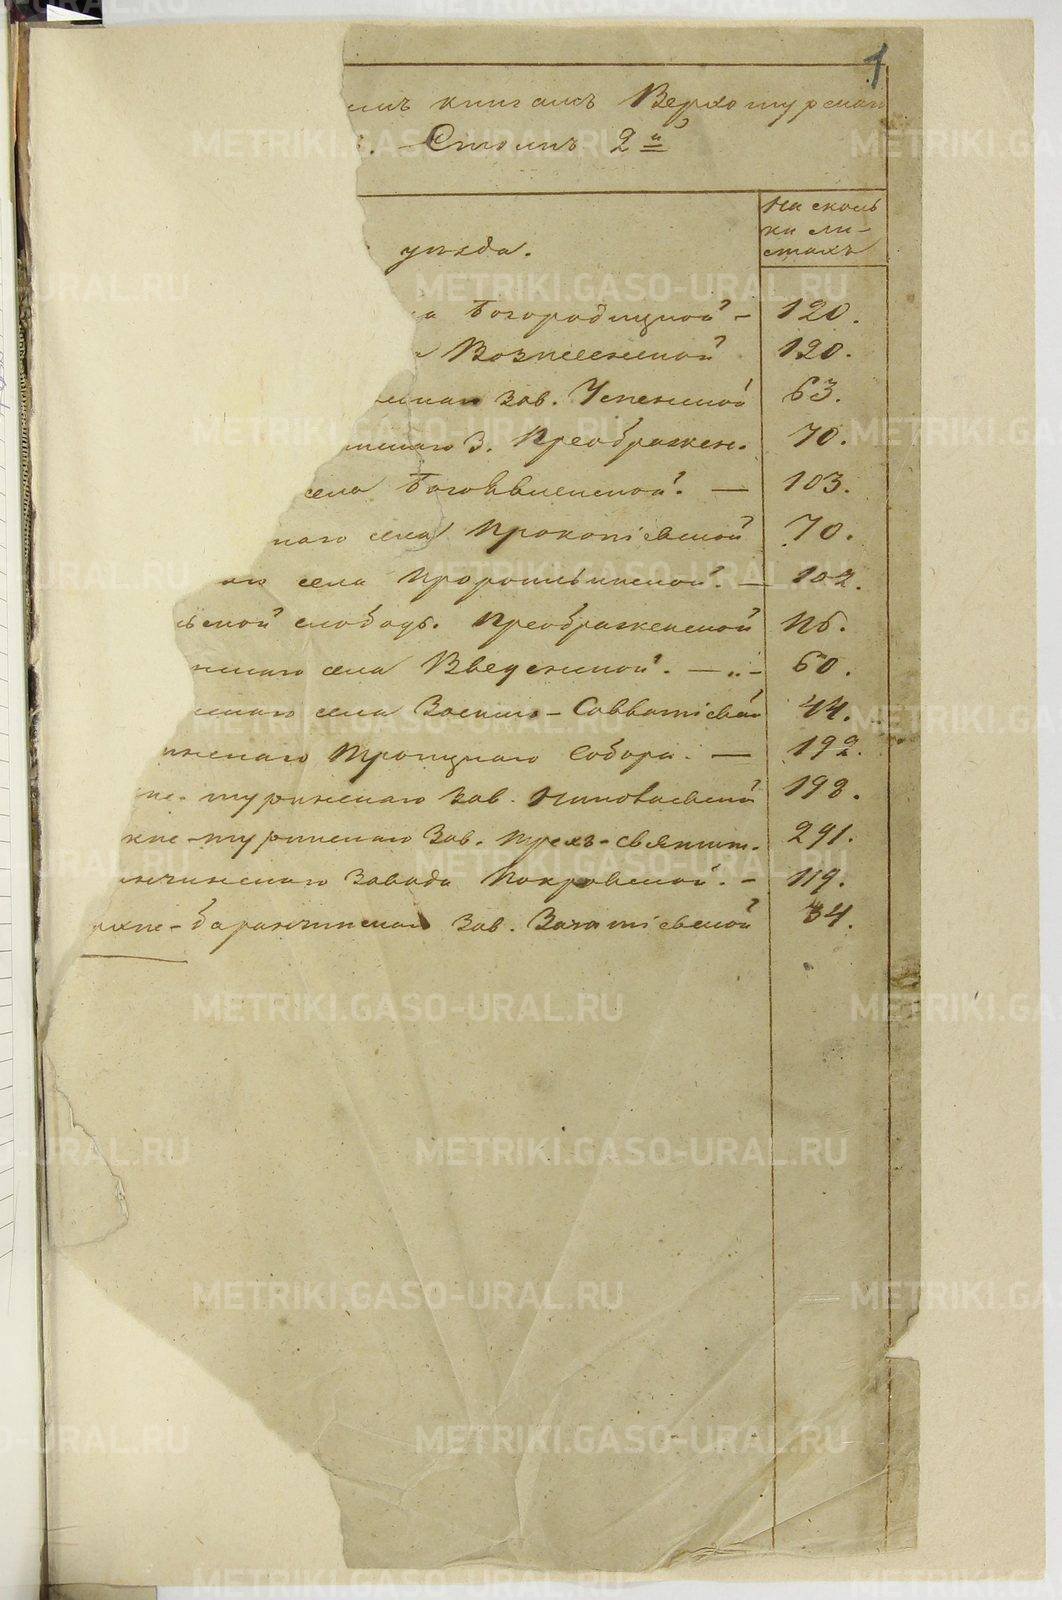 1
имъ книгамъ Верхотурскаго
Столпъ 2й
уѣзда.
На сколь
ки ли-
стахъ
а Богородицкой – 120.
Вознесенской 120.
скаго зав. Успенской 63.
инскаго З. Преображен. 70.
села Богоявленской. — 103.
наго села Прокопіевской 70.
аго села Пророкоильинской. — 102.
ьской слободы. Преображенской
нскаго села Введенской. — „ – 60.
скаго села Зосимо-Савватіевской 44.
инскаго Троицкаго Собора. — 192.
не-туринскаго Зав. Николаевской 198.
хне-туринскаго Зав. Трехъ-святит. 291.
анчинскаго Завода Покровской. – 119.
рхне-баранчинскаго Зав. Зачатіевской 34.
METRIKI.GASO-URAL.RU